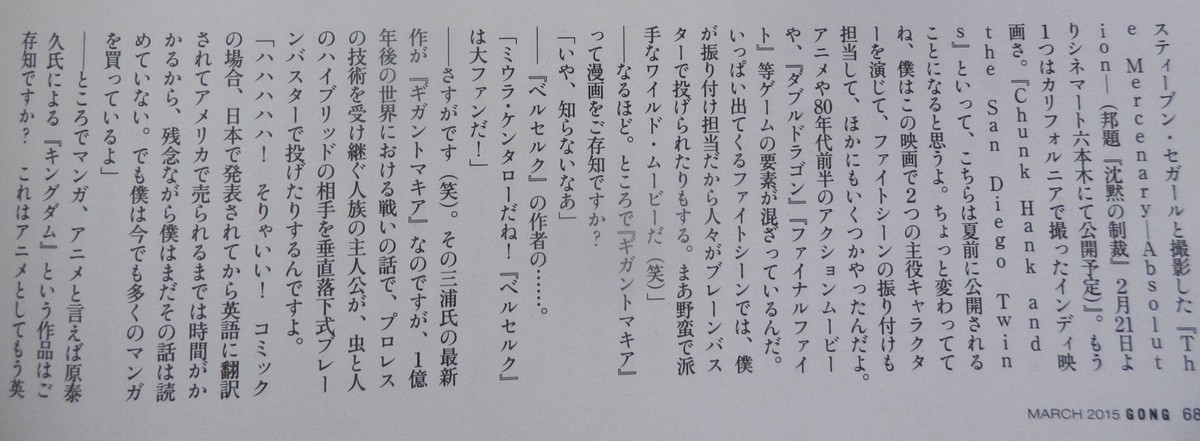 スティーブン・セガールと撮影した『Th
e Mercenary―Absolut
ion―（邦題『沈黙の制裁』2月21日よ
りシネマート六本木にて公開予定）』。もう
1つはカリフォルニアで撮ったインディ映
画さ。『Chunk Hank and
the San Diego Twin
s』といって、こちらは夏前に公開される
ことになると思うよ。ちょっと変わってて
ね、僕はこの映画で2つの主役キャラクタ
ーを演じて、ファイトシーンの振り付けも
担当して、ほかにもいくつかやったんだよ。
アニメや80年代前半のアクションムービー
や、『ダブルドラゴン』『ファイナルファイ
ト』等ゲームの要素が混ざっているんだ。
いっぱい出てくるファイトシーンでは、僕
が振り付け担当だから人々がブレーンバス
ターで投げられたりもする。まあ野蛮で派
手なワイルド・ムービーだ（笑）」
――なるほど。ところで『ギガントマキア』
って漫画をご存知ですか？
「いや、知らないなあ」
――『ベルセルク』の作者の……。
「ミウラ・ケンタローだね！『ベルセルク』
は大ファンだ！」
――さすがです（笑）。その三浦氏の最新
作が『ギガントマキア』なのですが、1億
年後の世界における戦いの話で、プロレス
の技術を受け継ぐ人族の主人公が、虫と人
のハイブリッドの相手を垂直落下式ブレー
ンバスターで投げたりするんですよ。
「ハハハハハ！　そりゃいい！　コミック
の場合、日本で発表されてから英語に翻訳
されてアメリカで売られるまでは時間がか
かるから、残念ながら僕はまだその話は読
めていない。でも僕は今でも多くのマンガ
を買っているよ」
――ところでマンガ、アニメと言えば原泰
久氏による『キングダム』という作品はご
存知ですか？　これはアニメとしてもう英
MARCH 2015 GONG 68